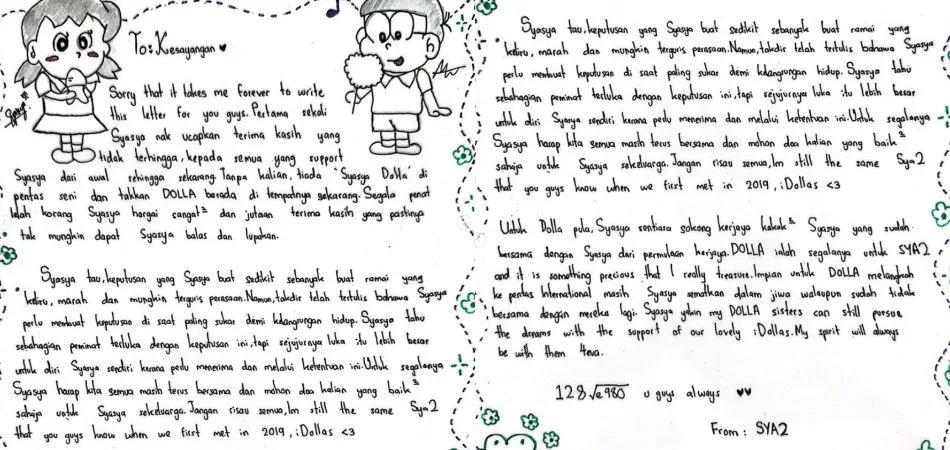 To: Kesayangan ♥
Sorry that it takes me forever to write
this letter for you guys. Pertama sekali
Syasya nak ucapkan terima kasih yang
tidak terhingga, kepada semua yang support
Syasya dari awal sehingga sekarang. Tanpa kalian, tiada "Syasya Dolla" di
pentas seni dan takkan DOLLA berada di tempatnya sekarang. Segala penat
lelah korang Syasya hargai sangat² dan jutaan terima kasih yang pastinya
tak mungkin dapat Syasya balas dan lupakan.
Syasya tau, keputusan yang Syasya buat sedikit sebanyak buat ramai yang
keliru, marah dan mungkin terguris perasaan. Namun, takdir telah tertulis bahawa Syasya
perlu membuat keputusan di saat paling sukar demi kelangsungan hidup. Syasya tahu
sebahagian peminat terluka dengan keputusan ini, tapi sejujurnya luka itu lebih besar
untuk diri Syasya sendiri kerana perlu menerima dan melalui ketentuan ini. Untuk segalanya
Syasya harap kita semua masih terus bersama dan mohon doa kalian yang baik²
sahaja untuk Syasya sekeluarga. Jangan risau semua, Im still the same Sya2
that you guys know when we first met in 2019, iDollas <3
Syasya tau, keputusan yang Syasya buat sedikit sebanyak buat ramai yang
keliru, marah dan mungkin terguris perasaan. Namun, takdir telah tertulis bahawa Syasya
perlu membuat keputusan di saat paling sukar demi kelangsungan hidup. Syasya tahu
sebahagian peminat terluka dengan keputusan ini, tapi sejujurnya luka itu lebih besar
untuk diri Syasya sendiri kerana perlu menerima dan melalui ketentuan ini. Untuk segalanya
Syasya harap kita semua masih terus bersama dan mohon doa kalian yang baik²
sahaja untuk Syasya sekeluarga. Jangan risau semua, Im still the same Sya2
that you guys know when we first met in 2019, iDollas <3
Untuk Dolla pula, Syasya sentiasa sokong kerjaya kakak² Syasya yang sudah
bersama dengan Syasya dari permulaan kerjaya. DOLLA ialah segalanya untuk SYA2
and it is something precious that I really treasure. Impian untuk DOLLA melangkah
ke pentas International masih Syasya sematkan dalam jiwa walaupun sudah tidak
bersama dengan mereka lagi. Syasya yakin my DOLLA sisters can still pursue
the dreams with the support of our lovely iDollas. My sprit will always
be with them 4eva.
128√e980 u guys always ♥♥
From: SYA2